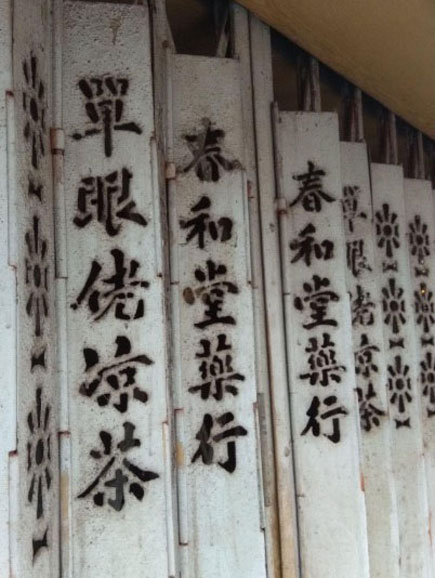 單眼佬凉茶
春和堂藥行
春和堂藥行
單眼佬凉茶